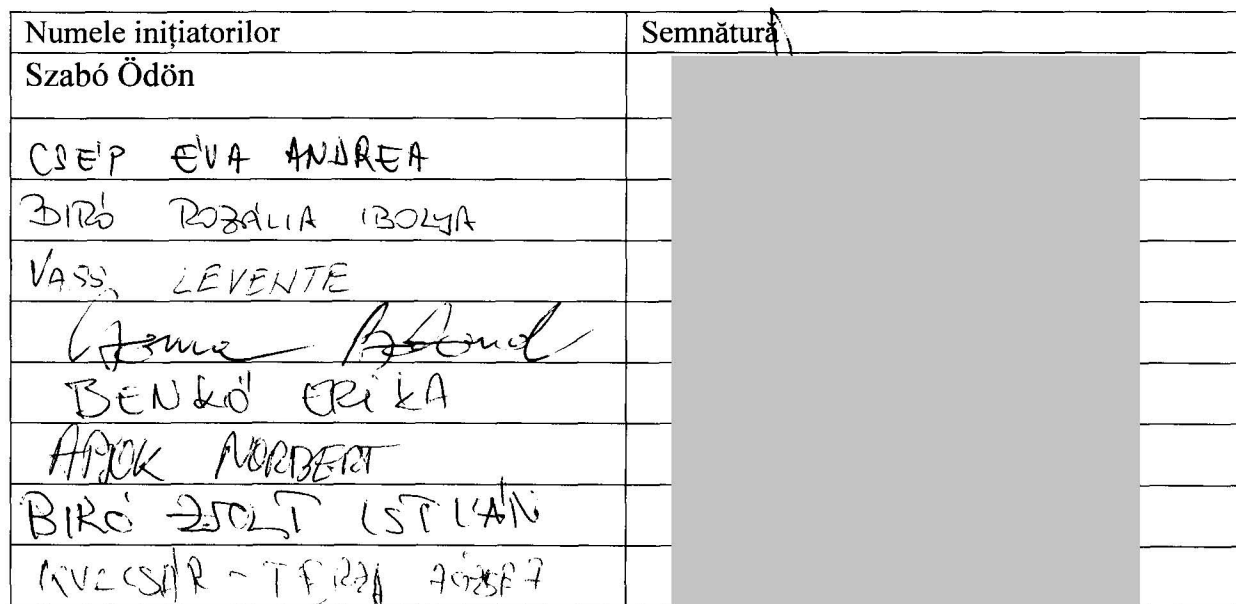 Numele inițiatorilor Semnătură
Szabó Ödön
CSÉP ÉVA ANDREA
BIRÓ ROZÁLIA IBOLYA
VASS LEVENTE
BENKŐ ERIKA
APJOK NORBERT
BIRÓ ZSOLT ISTVÁN
JÓZSEF